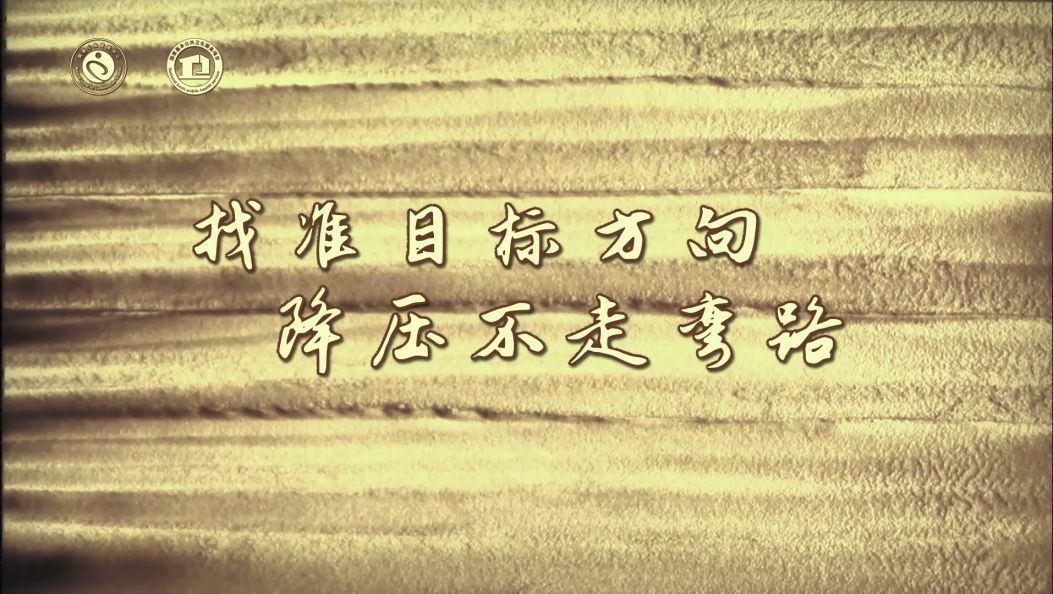 找准目标方向
降压不走弯路